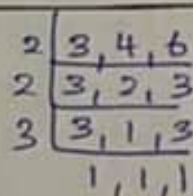 2 3, 4, 6
2 3, 2, 3
3 3, 1, 3
1, 1, 1